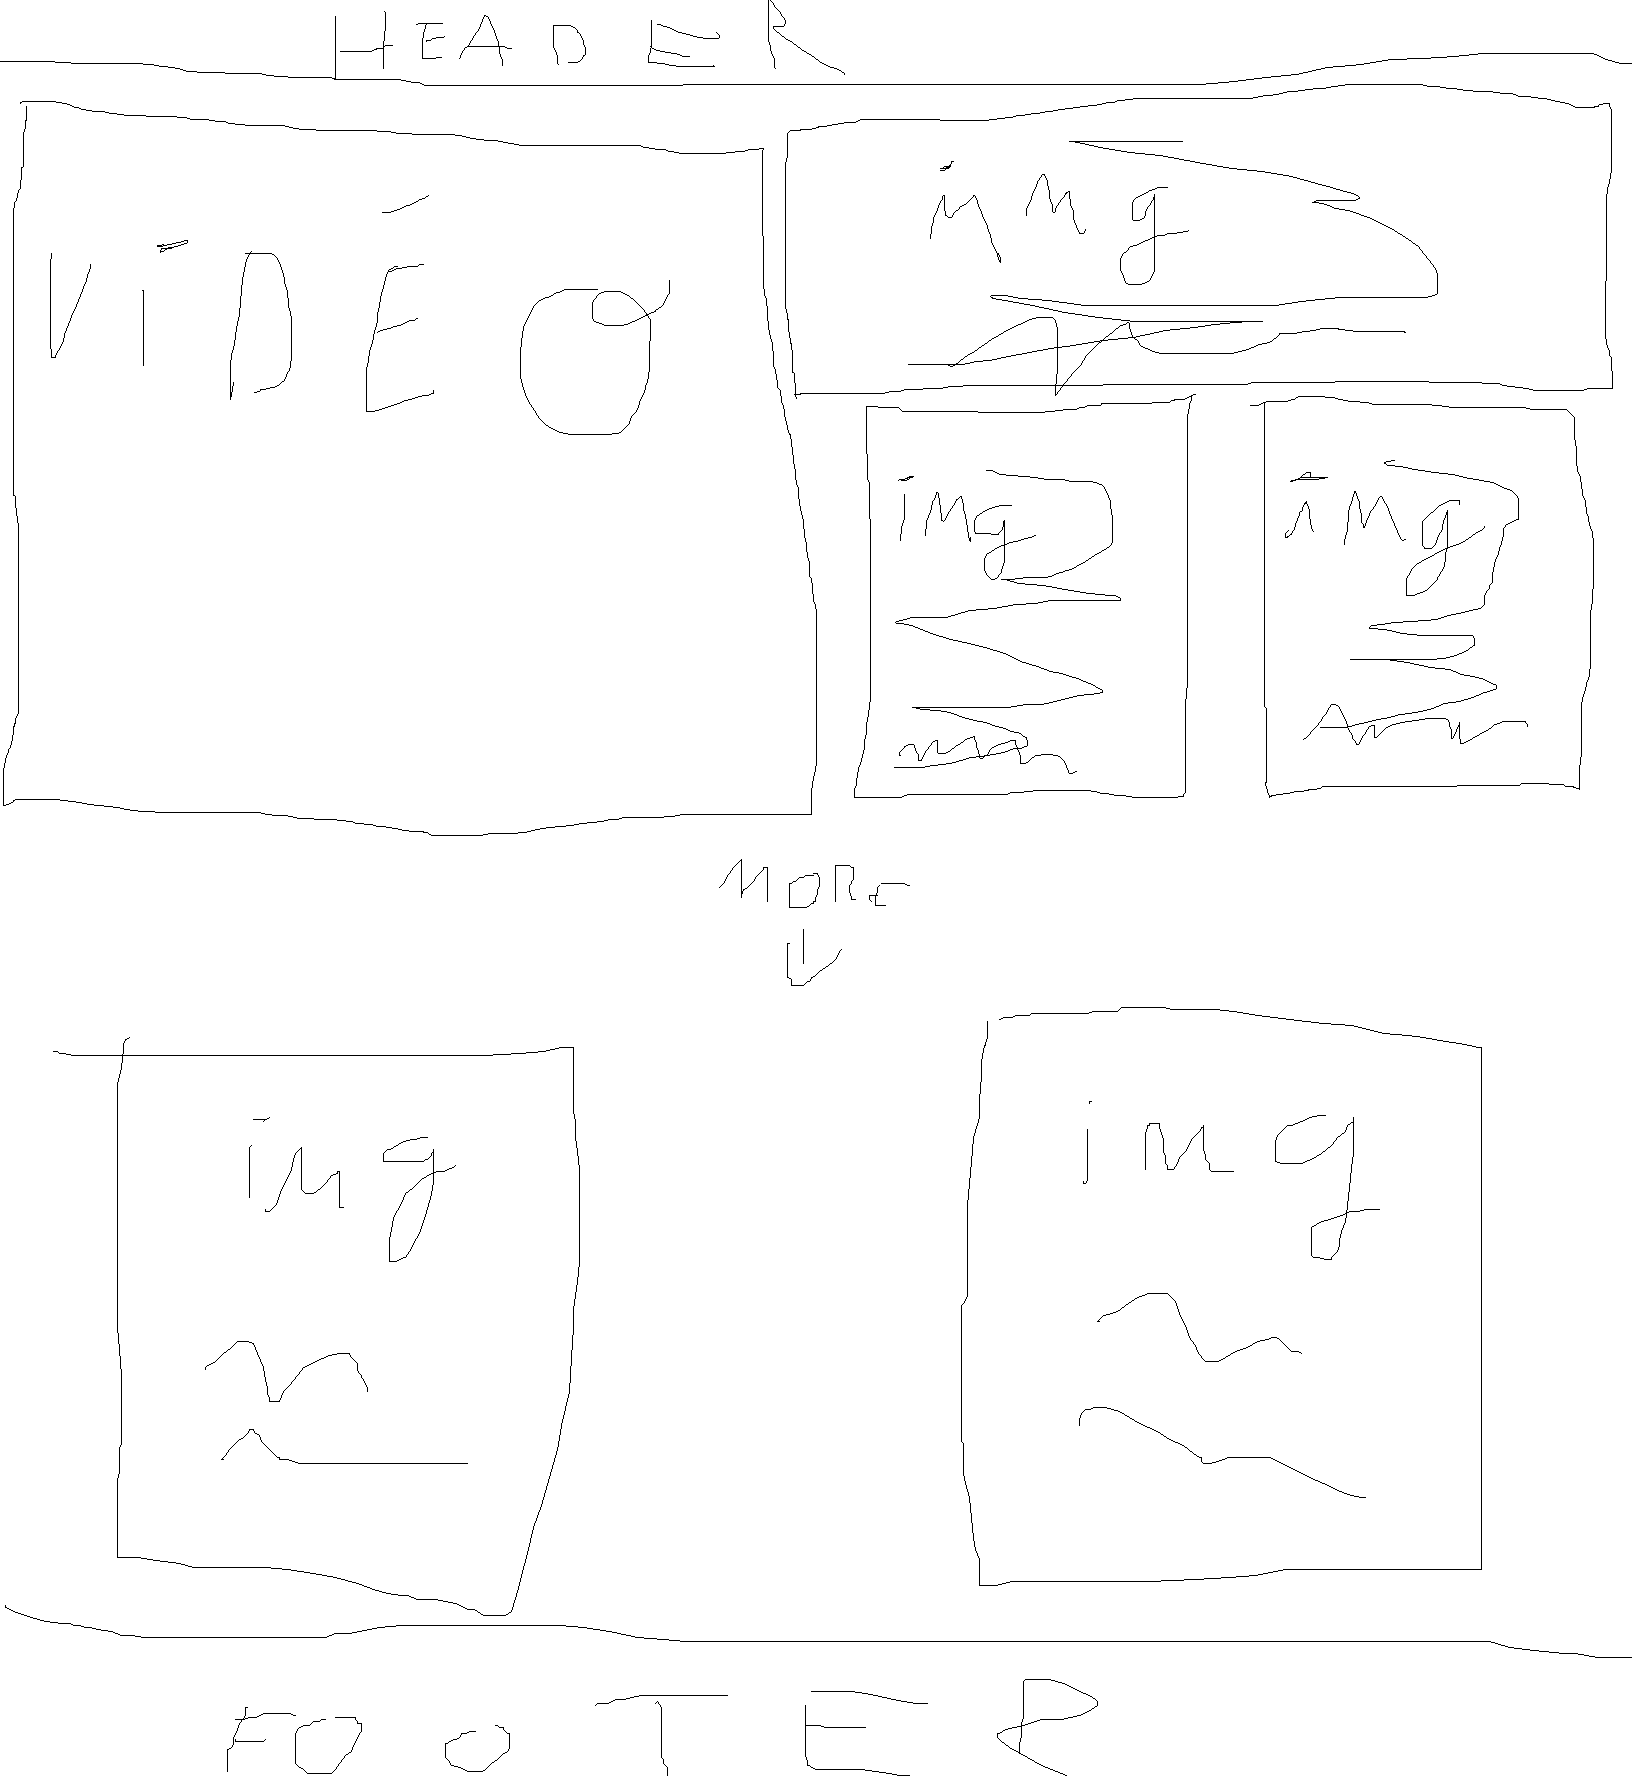 HEADER
ViDÉO
img
img
img
MORE
img
img
FOOTER